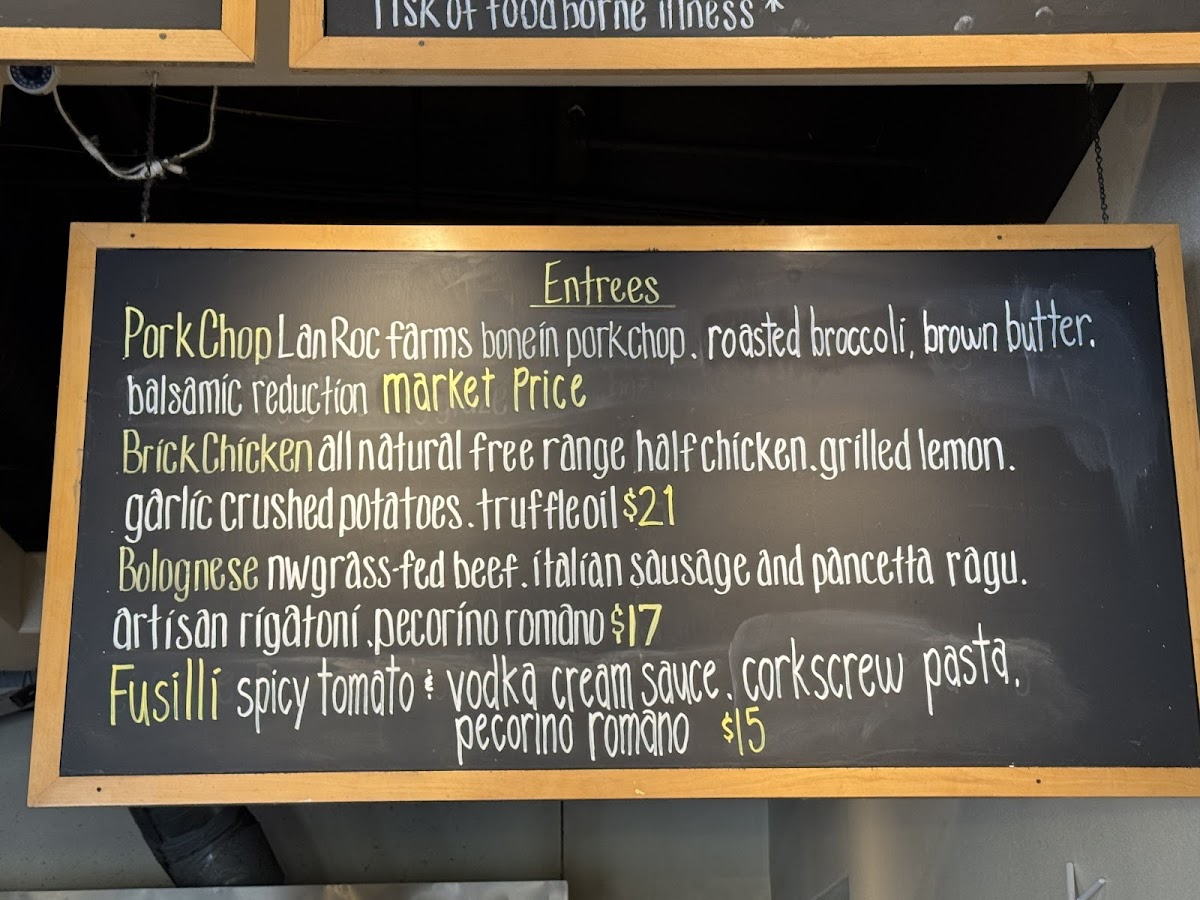 risk of foodborne illness*
Entrees
Pork Chop Lan Roc farms bone in pork chop. roasted broccoli, brown butter.
balsamic reduction market Price
Brick Chicken all natural free range half chicken. grilled lemon.
garlic crushed potatoes. truffle oil $21
Bolognese nw grass-fed beef. italian sausage and pancetta ragu.
artisan rigatoni. pecorino romano $17
Fusilli spicy tomato & vodka cream sauce. corkscrew pasta.
pecorino romano $15